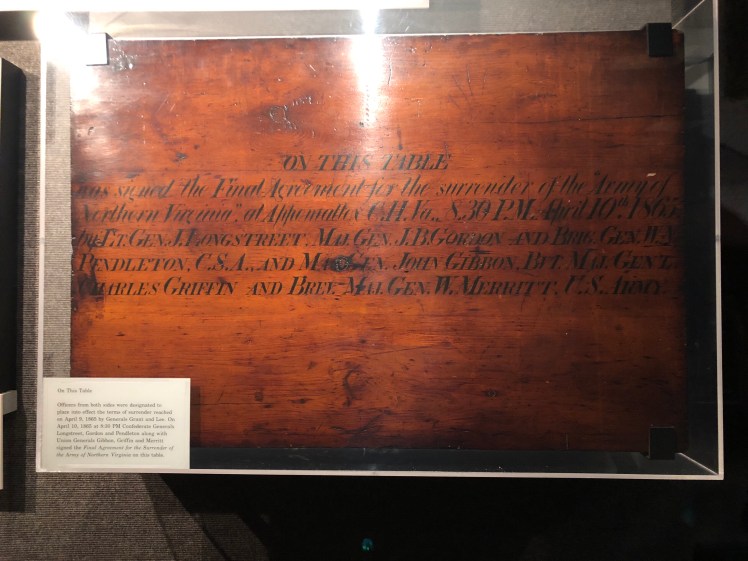 ON THIS TABLE
was signed the Final Agreement for the surrender of the "Army of
Northern Virginia," at Appomattox C.H. Va., 8.30 P.M. April 10th 1865,
by LT. GEN. J. LONGSTREET, MAJ. GEN. J.B. GORDON AND BRIG. GEN. W.N.
PENDLETON, C.S.A., AND MAJ. GEN. JOHN GIBBON, BVT. MAJ. GEN'L
CHARLES GRIFFIN AND BREV. MAJ. GEN. W. MERRITT, U.S. ARMY.
On This Table
Officers from both sides were designated to
place into effect the terms of surrender reached
on April 9, 1865 by Generals Grant and Lee. On
April 10, 1865 at 8:30 PM Confederate Generals
Longstreet, Gordon and Pendleton along with
Union Generals Gibbon, Griffin and Merritt
signed the Final Agreement for the Surrender of
the Army of Northern Virginia on this table.